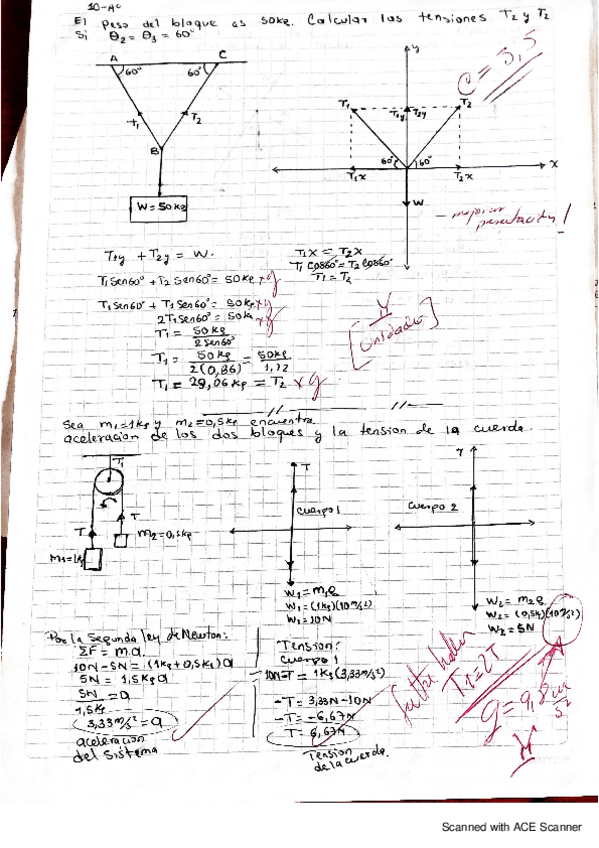 10-Aº
El peso del bloque es 50kg. Calcular las tensiones T2 y T2
Si θ2 = θ3 = 60°
A C
60° 60°
T1 T2
B
W = 50kg
y
T1 T1y T2y T2
60° 60°
T1x T2x X
W
C = 3,5
- mejorar presentación!
T1y + T2y = W.
T1x = T2x
T1 Cos60° = T2 Cos60°
T1 = T2
T1 Sen60° + T2 Sen60° = 50kg × g
T1 Sen60° + T1 Sen60° = 50kg × g
2T1 Sen60° = 50kg × g
T1 = 50kg / 2 Sen60°
T1 = 50kg / 2(0,86) = 50kg / 1,72
T1 = 29,06kg = T2 × g
[Unidades]
Sea m1=1kg y m2=0,5kg encuentra
aceleracion de los dos bloques y la tension de la cuerda.
T1
T T
m2=0,5kg
m1=1kg
T
Cuerpo 1
W1 = m1g
W1 = (1kg)(10m/s²)
W1 = 10N
Cuerpo 2
W2 = m2g
W2 = (0,5k)(10m/s²)
W2 = 5N
Por la Segunda ley de Newton:
ΣF = m.a.
10N - 5N = (1kg + 0,5kg)a
5N = 1,5kg a
5N / 1,5kg = a
3,33m/s² = a
aceleración
del sistema
Tension:
Cuerpo 1
10N - T = 1kg(3,33m/s²)
-T = 3,33N - 10N
-T = -6,67N
T = 6,67N
Tension
de la cuerda.
falta hallar
T1 = 2T
g = 9,8 m/s²
Scanned with ACE Scanner